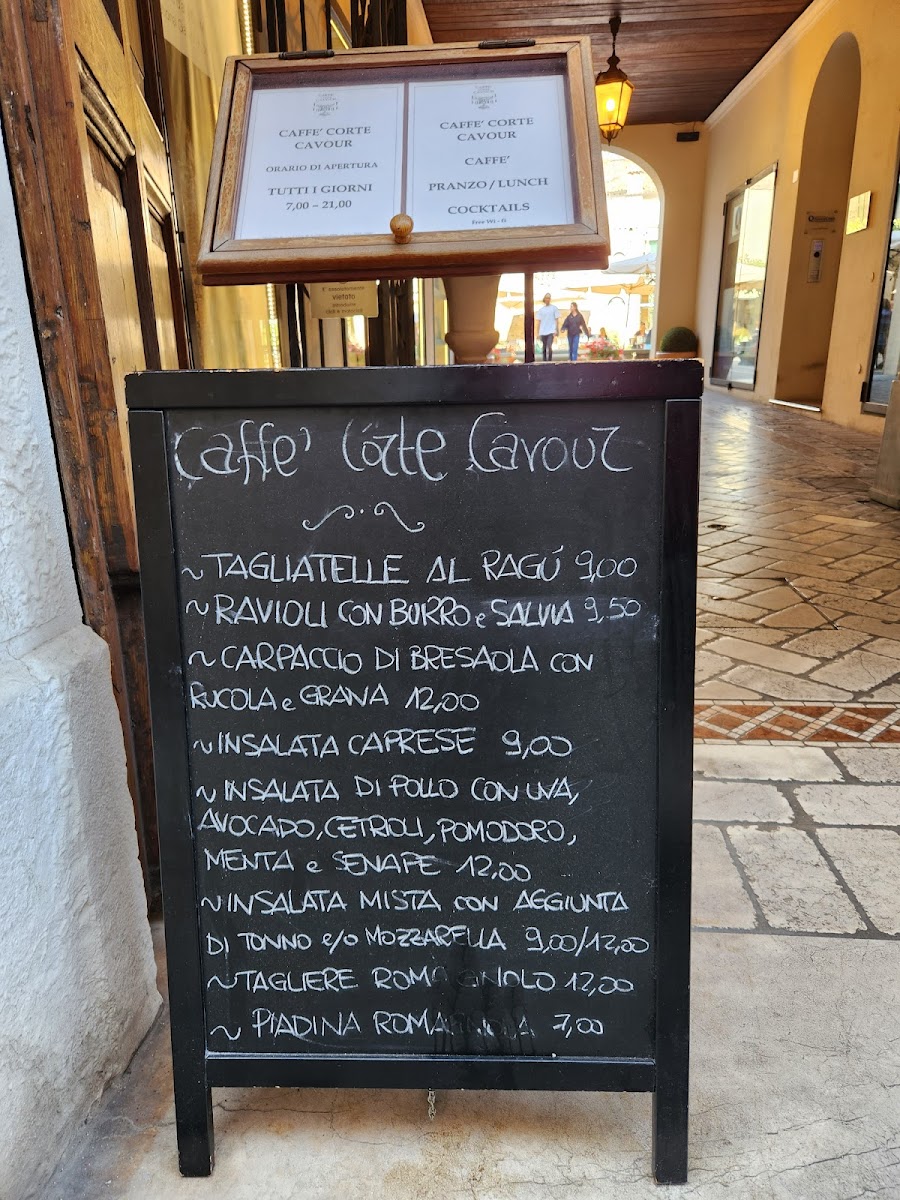 CAFFE' CORTE
CAVOUR
ORARIO DI APERTURA
TUTTI I GIORNI
7,00 – 21,00
CAFFE' CORTE
CAVOUR
CAFFE'
PRANZO/LUNCH
COCKTAILS
Free Wi - fi
vietato
Caffe' Corte Cavour
~TAGLIATELLE AL RAGÚ 9,00
~RAVIOLI CON BURRO e SALVIA 9,50
~CARPACCIO DI BRESAOLA CON
RUCOLA e GRANA 12,00
~INSALATA CAPRESE 9,00
~INSALATA DI POLLO CON UVA,
AVOCADO, CETRIOLI, POMODORO,
MENTA e SENAPE 12,00
~INSALATA MISTA CON AGGIUNTA
DI TONNO e/o MOZZARELLA 9,00/12,00
~TAGLIERE ROMAGNOLO 12,00
~ PIADINA ROMAGNOLA 7,00